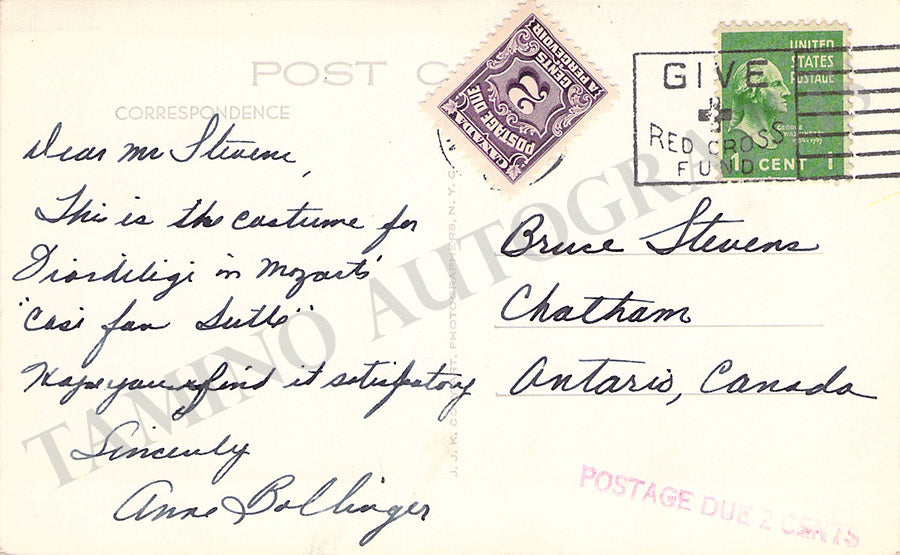 POST CARD
CORRESPONDENCE
Dear Mr Stevens,
This is the costume for
Fiordiligi in Mozarts'
"Cosi fan Tutte"
Hope you find it satisfactory
Sincerely
Anne Bollinger
CANADA
POSTAGE DUE
2
CENTS
A PERCEVOIR
GIVE
RED CROSS
FUND
UNITED
STATES
POSTAGE
GEORGE
WASHINGTON
1 CENT 1
Bruce Stevens
Chatham
Ontario, Canada
POSTAGE DUE 2 CENTS
PHOTOGRAPHERS, N.Y.C.
TAMINO AUTOGRAPHS